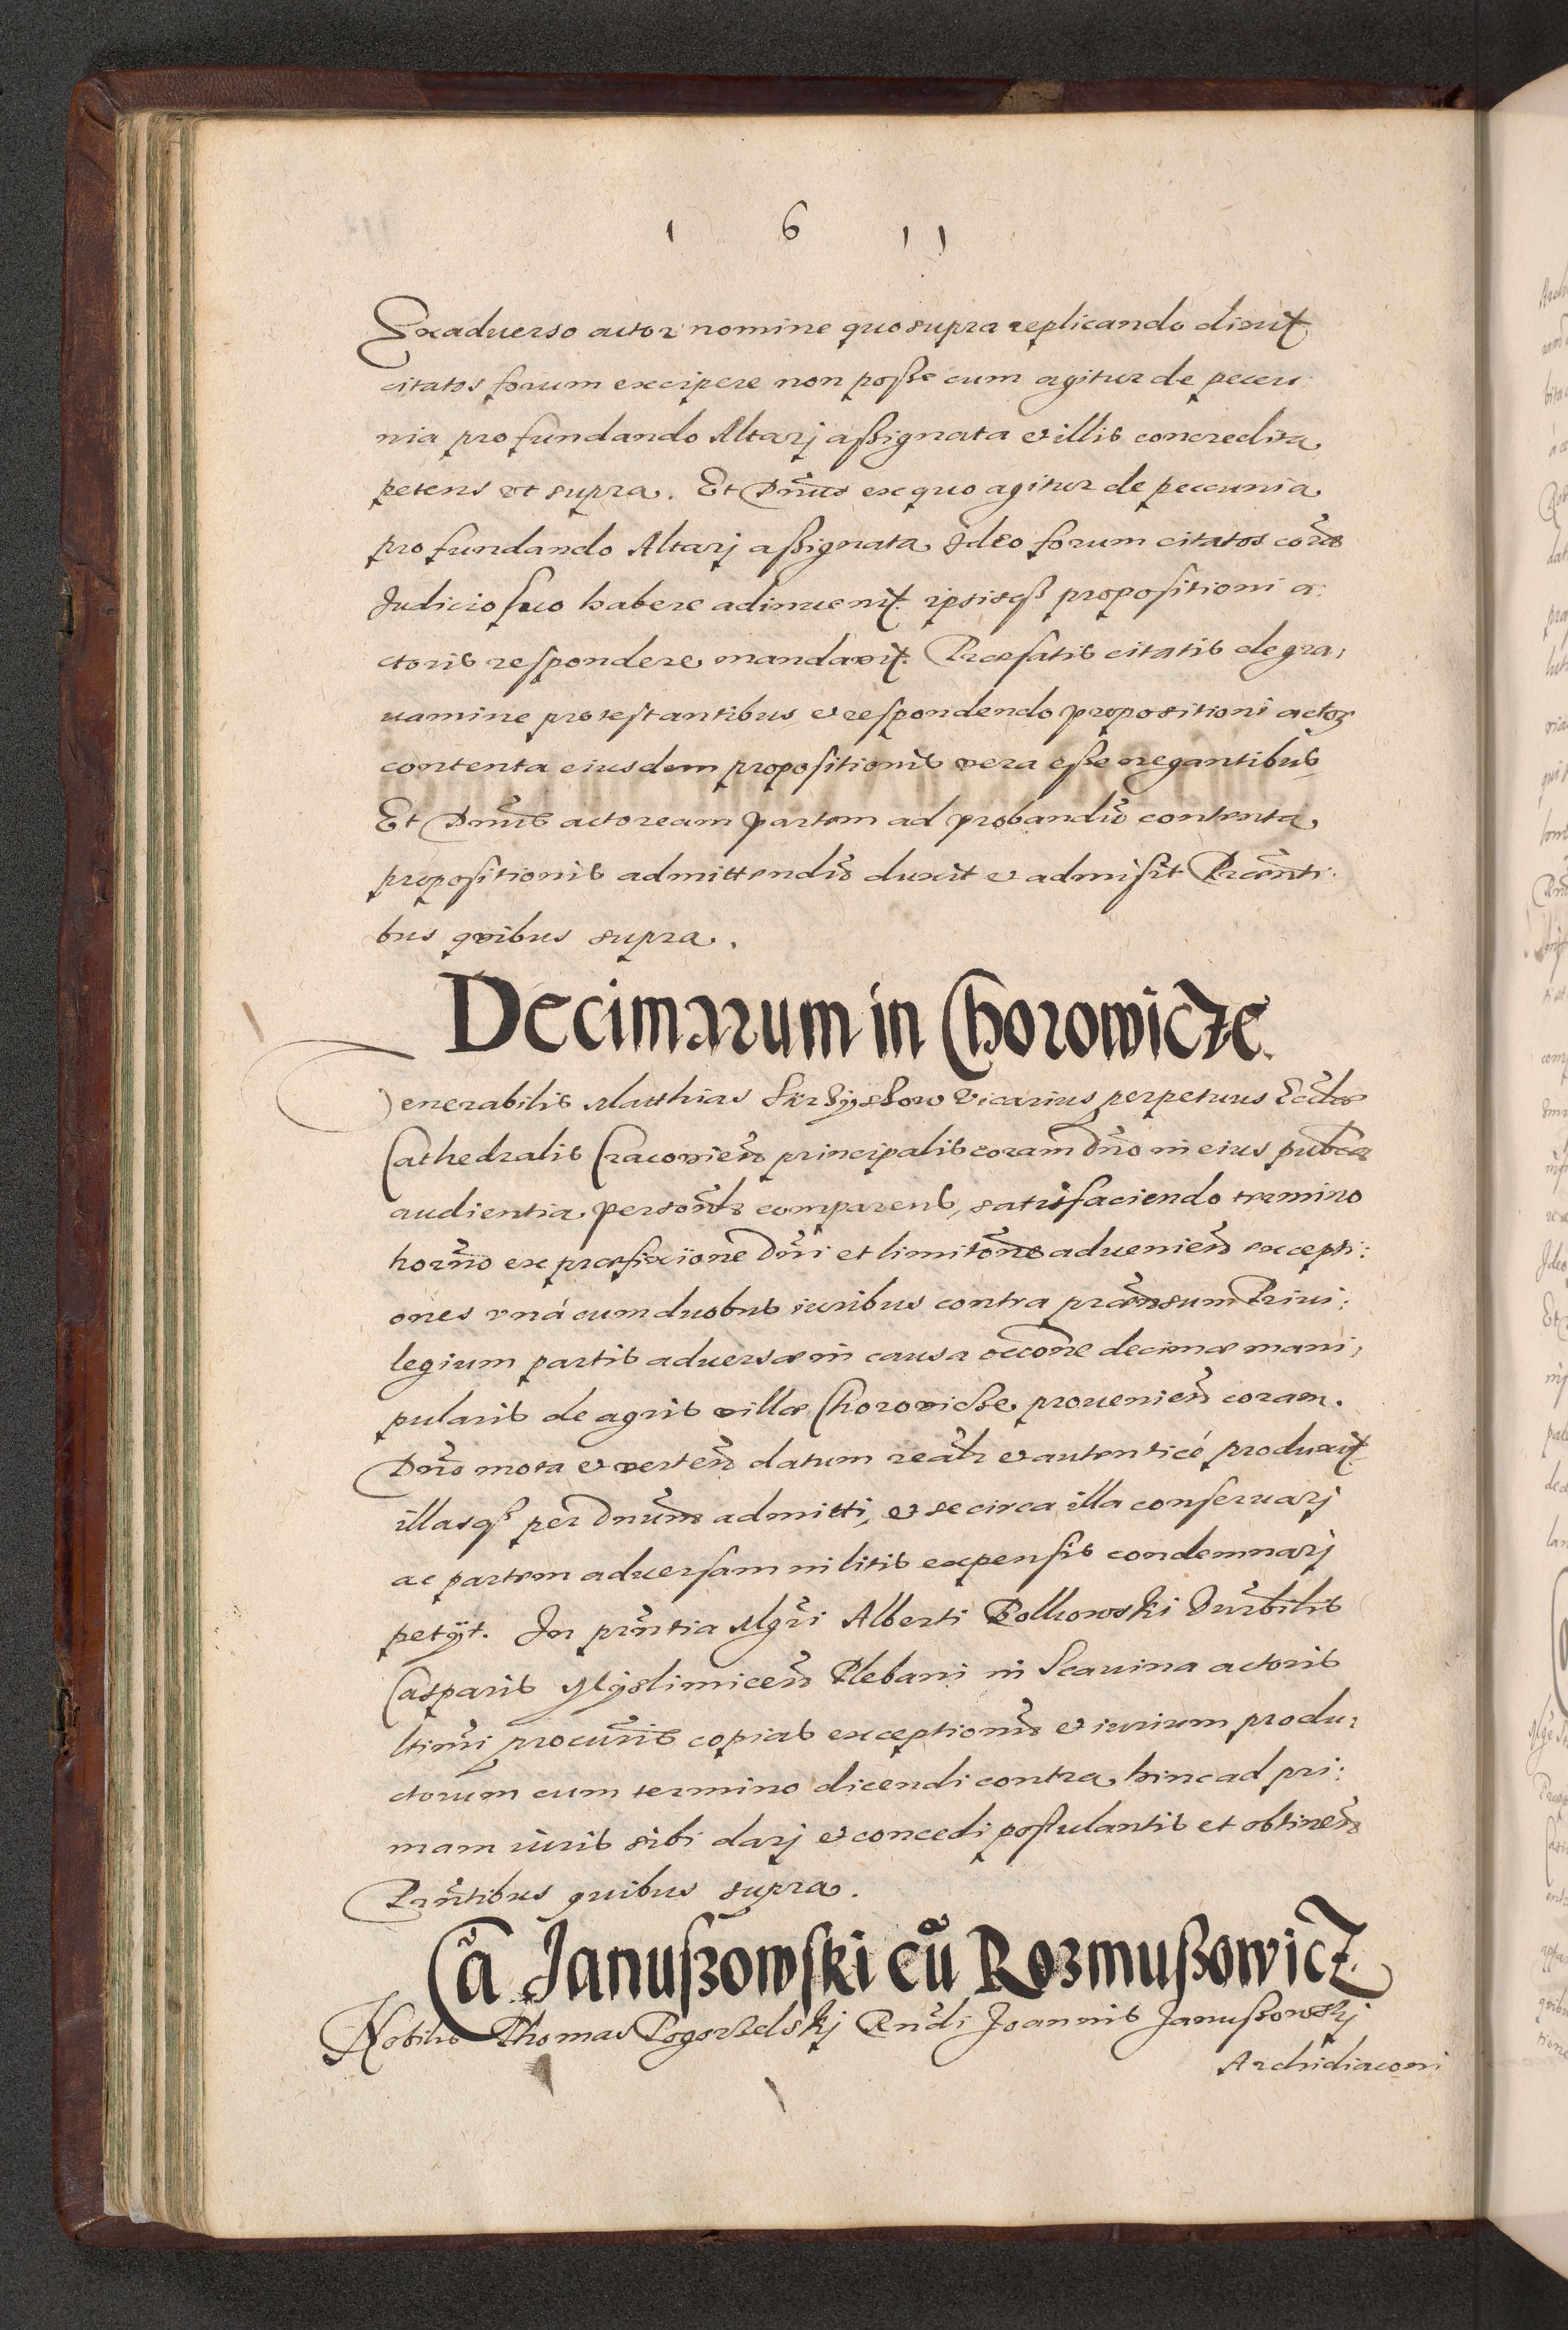 1 6 11
Exaduerso actor nomine quo supra replicando dixit
citatos forum excipere non posse cum agitur de pecu:
nia pro fundando Altarj assignata et illis concredita
petens vt supra. Et Dnus ex quo agitur de peccunia
pro fundando Altarj assignata Ideo forum citatos cora
Iudicio suo habere adinuenit ipsisq propositioni a:
ctoris respondere mandavit. Præfatis citatis de gra,
uamine protestantibus et respondendo propositioni actor
contenta eiusdem propositionis vera esse negantibus
Et Dnus actoream partem ad probandu contenta
propositionis admittendu duxit et admisit Præsnti:
bus quibus supra.
Decimarum in Chorowicze
Venerabilis Matthias vicarius perpetuus Eccliæ
Cathedralis Cracovien principalis coram Dno in eius publca
audientia personlr comparens, satisfaciendo termino
horno ex præfixione Dni et limitone aduenien excepti:
ones vná cum duobus iuribus contra prænsum Priui:
legium partis aduersæ in causa occone decimæ mani,
pularis de agris villæ Chorovicze prouenien coram.
Dno mota et verten datum realr et autenticé produxit
illasq per Dnum admitti, et se circa illa conseruarj
ac partem aduersam in litis expensis condemnarj
petÿt. In prntia Mgri Alberti Polkowski Vnrbilis
Casparis Myslimicen Plebani in Scauina actoris
ltimi procuris copias exceptionu et iurium produ,
ctorum cum termino dicendi contra hinc ad pri:
mam iuris sibi darj et concedi postulantis et obtinen
Prntibus quibus supra.
Ca Januszowski cu Rozmuszowicz
Nobilis Thomas Pogorzelskj Rndi Joannis Januszowskj
Archidiaconi